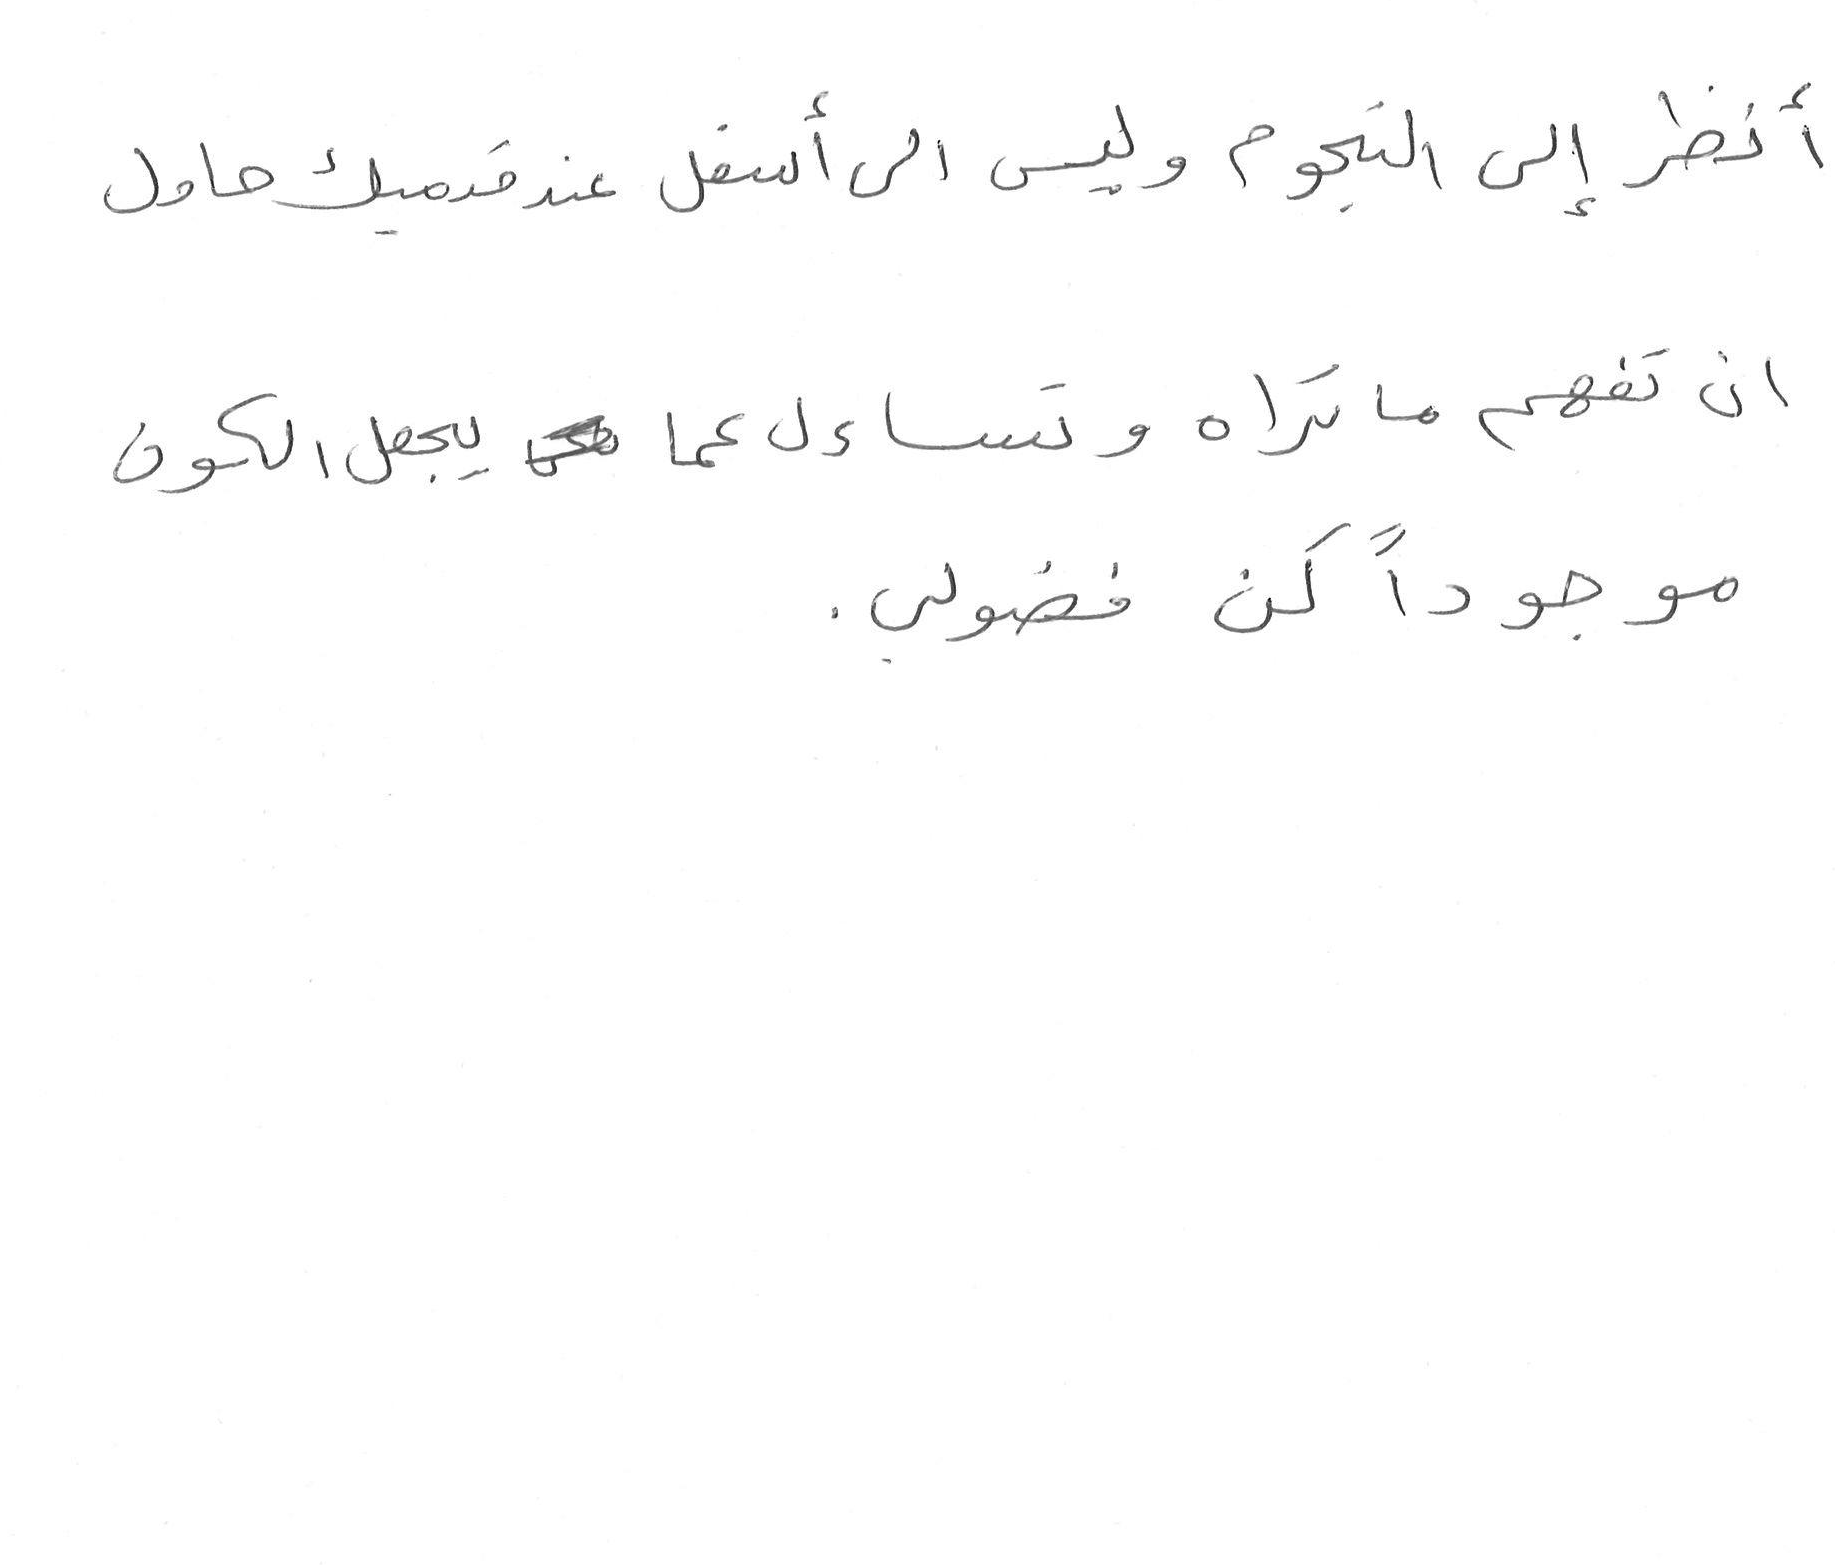 أنظر إلى النجوم وليس الى أسفل عند قدميك حاول
ان تفهم ما تراه وتساءل عما يجعل الكون
موجوداً كن فضولي.